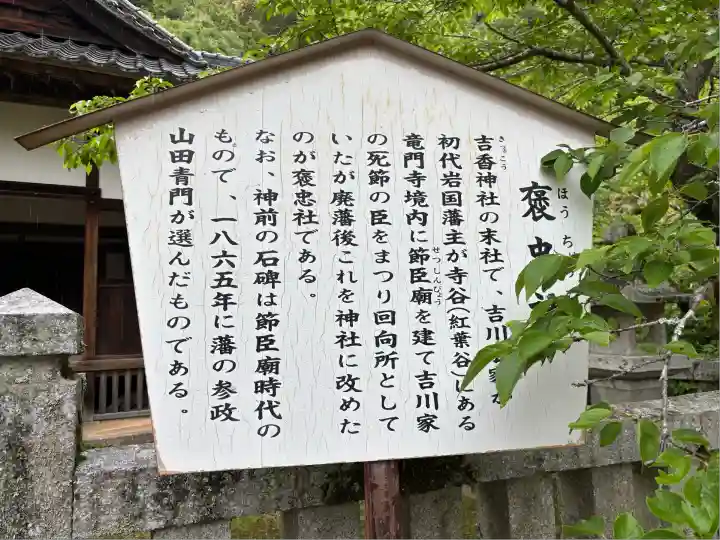 褒忠
ほうち
吉香神社の末社で、吉川家
きっこう
初代岩国藩主が寺谷(紅葉谷)にある
竜門寺境内に節臣廟を建て吉川家
せつしんびょう
の死節の臣をまつり回向所として
いたが廃藩後これを神社に改めた
のが褒忠社である。
なお、神前の石碑は節臣廟時代の
もので、一八六五年に藩の参政
山田青門が選んだものである。